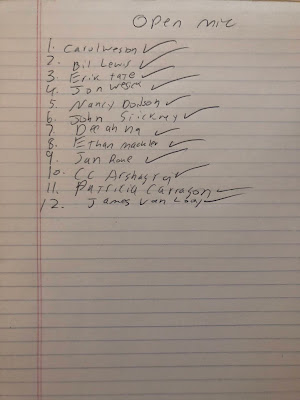 Open mic
1. Carol Wesson
2. Bil Lewis
3. Erik Tate
4. Jon Wesick
5. Nancy Dodson
6. John Sickney
7. Deahna
8. Ethan mackler
9. Jan Rowe
10. CC Arshagra
11. Patricia Carragon
12. James Van Looy